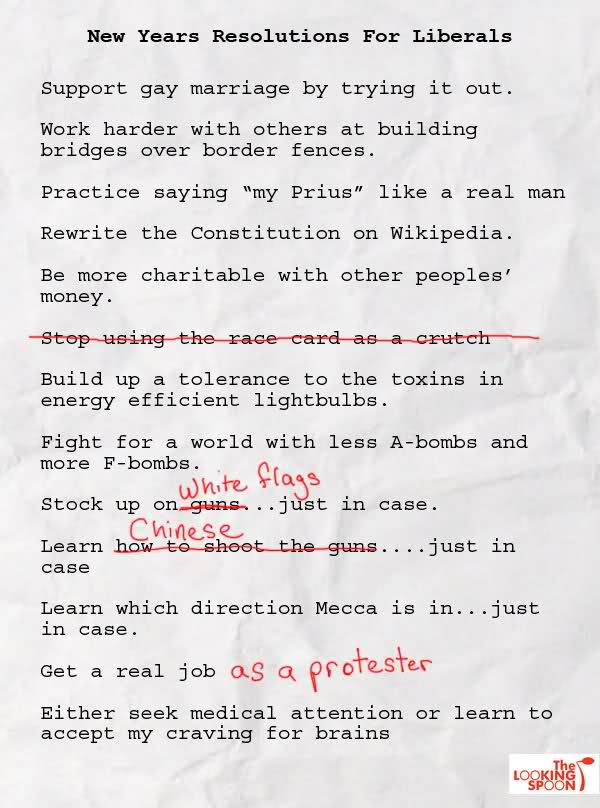 New Years Resolutions For Liberals
Support gay marriage by trying it out.
Work harder with others at building
bridges over border fences.
Practice saying “my Prius” like a real man
Rewrite the Constitution on Wikipedia.
Be more charitable with other peoples’
money.
Stop using the race card as a crutch
Build up a tolerance to the toxins in
energy efficient lightbulbs.
Fight for a world with less A-bombs and
more F-bombs.
White flags
Stock up on guns...just in case.
Chinese
Learn how to shoot the guns....just in
case
Learn which direction Mecca is in...just
in case.
Get a real job as a protester
Either seek medical attention or learn to
accept my craving for brains
The
LOOKING
SPOON